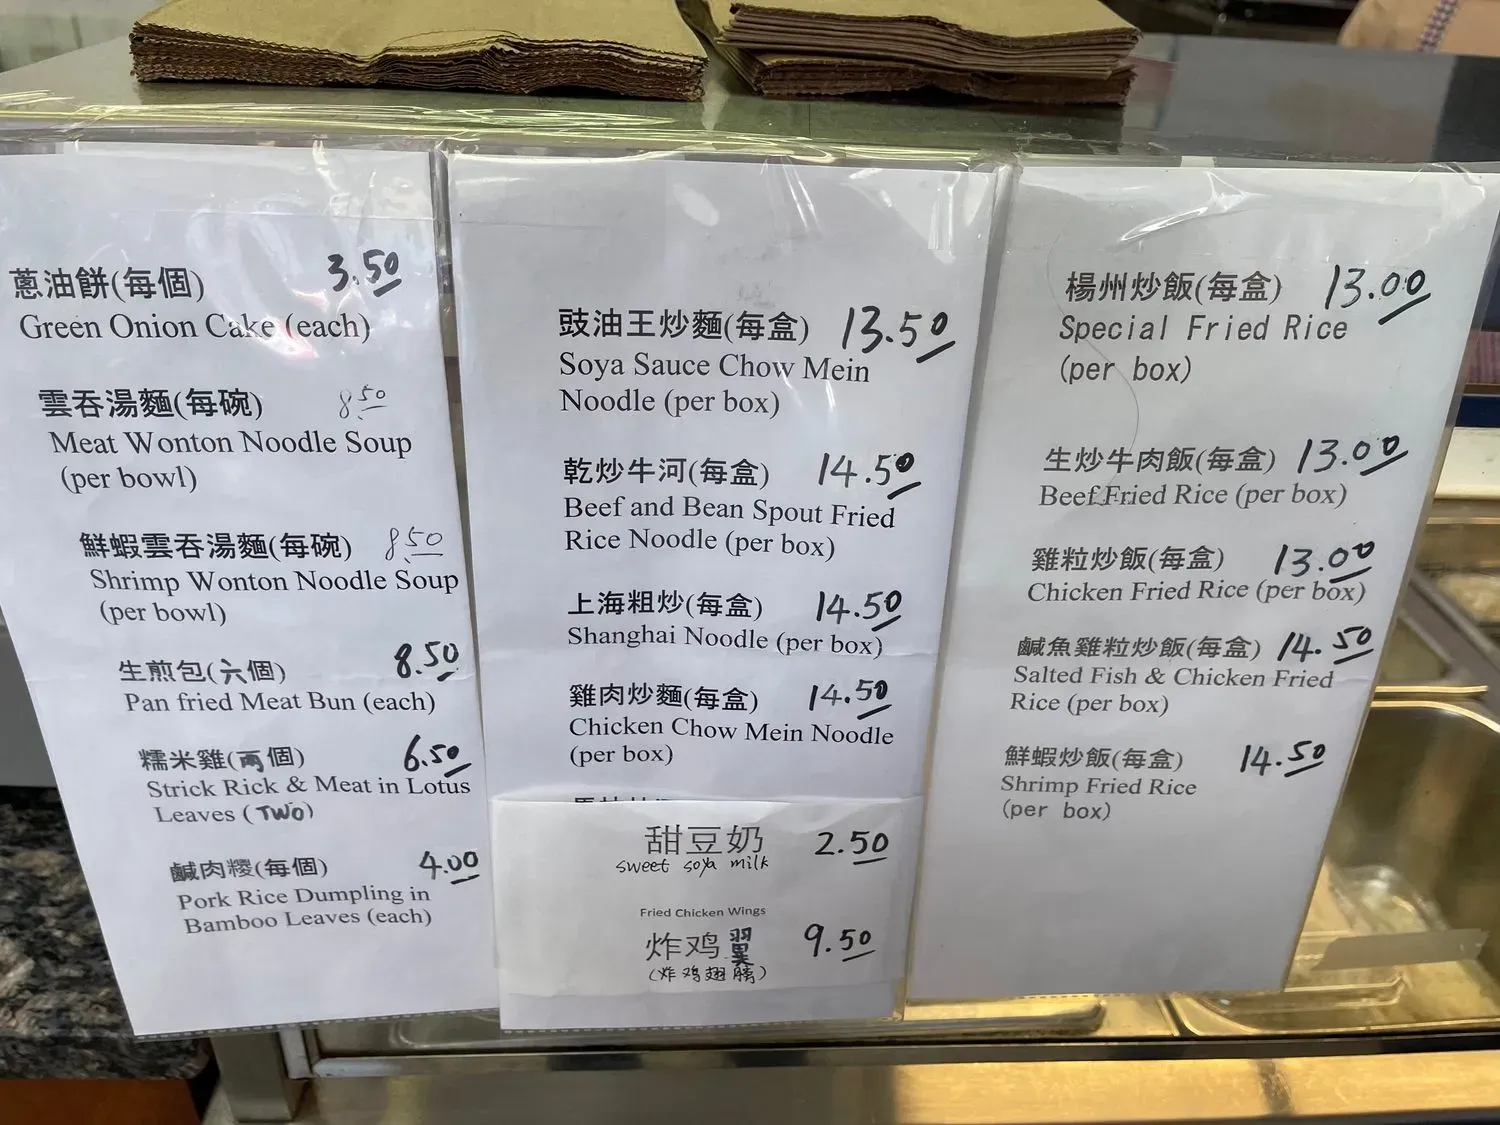 蔥油餅(每個) 3.50
Green Onion Cake (each)
雲吞湯麵(每碗) 8.50
Meat Wonton Noodle Soup
(per bowl)
鮮蝦雲吞湯麵(每碗) 8.50
Shrimp Wonton Noodle Soup
(per bowl)
生煎包(六個) 8.50
Pan fried Meat Bun (each)
糯米雞(両個) 6.50
Strick Rick & Meat in Lotus
Leaves (TWO)
鹹肉糉(每個) 4.00
Pork Rice Dumpling in
Bamboo Leaves (each)
豉油王炒麵(每盒) 13.50
Soya Sauce Chow Mein
Noodle (per box)
乾炒牛河(每盒) 14.50
Beef and Bean Spout Fried
Rice Noodle (per box)
上海粗炒(每盒) 14.50
Shanghai Noodle (per box)
雞肉炒麵(每盒) 14.50
Chicken Chow Mein Noodle
(per box)
甜豆奶 2.50
sweet soya milk
Fried Chicken Wings
炸鸡翼 9.50
(炸鸡翅膀)
楊州炒飯(每盒) 13.00
Special Fried Rice
(per box)
生炒牛肉飯(每盒) 13.00
Beef Fried Rice (per box)
雞粒炒飯(每盒) 13.00
Chicken Fried Rice (per box)
鹹魚雞粒炒飯(每盒) 14.50
Salted Fish & Chicken Fried
Rice (per box)
鮮蝦炒飯(每盒) 14.50
Shrimp Fried Rice
(per box)